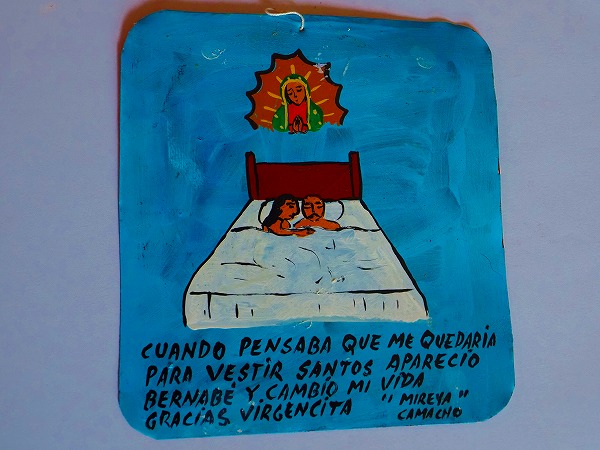 CUANDO PENSABA QUE ME QUEDARIA
PARA VESTIR SANTOS APARECIÓ
BERNABÉ Y CAMBIO MI VIDA
GRACIAS VIRGENCITA "MIREYA"
CAMACHO